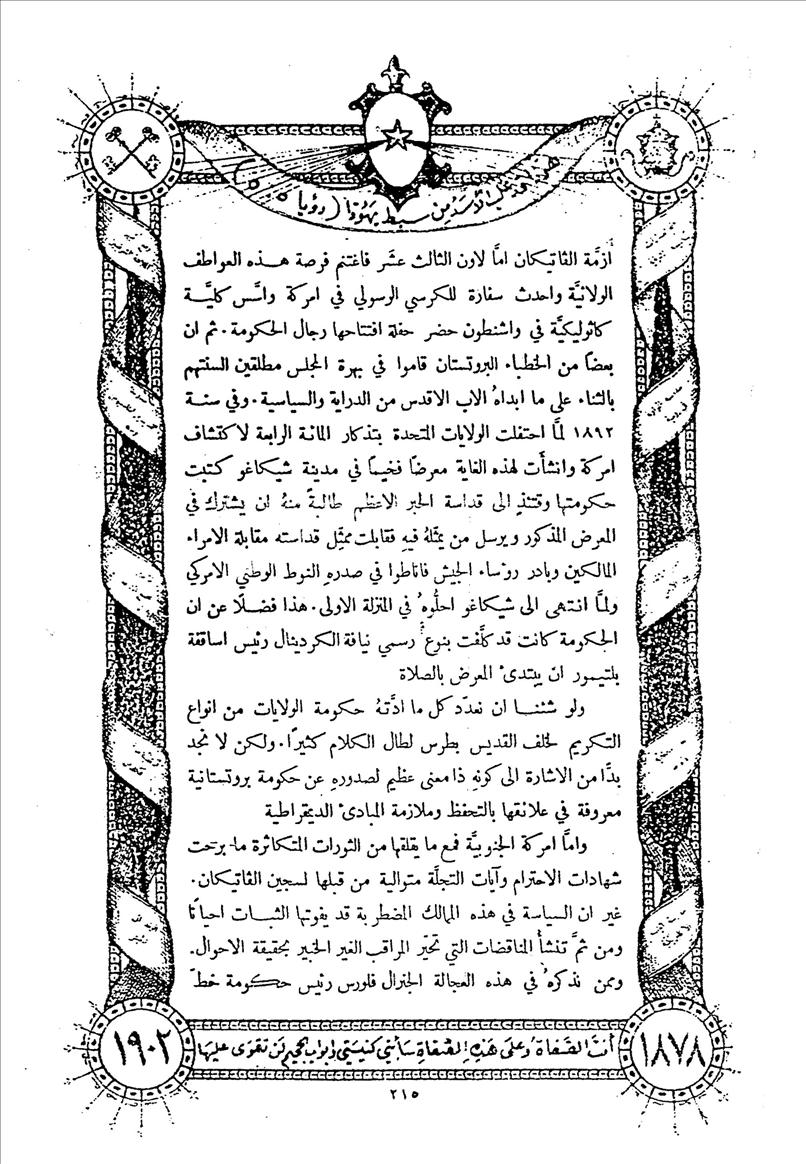 هوذا قد غلب الأسد من سبط يهوذا (رؤيا ٥ : ٥)
أزمَّة الڤاتيكان امَّا لاون الثالث عشر فاغتنم فرصة هــذه العواطف
الولائيَّة واحدث سفارة للكرسي الرسولي في امركة واسَّس كليَّة
كاثوليكيَّة في واشنطون حضر حفلة افتتاحها رجال الحكومة. ثم ان
بعضاً من الخطباء البروتستان قاموا في بهرة المجلس مطلقين السنتهم
بالثناء على ما ابداهُ الاب الاقدس من الدراية والسياسية. وفي سنـة
١٨٩٢ لمَّا احتفلت الولايات المتحدة بتذكار المائة الرابعة لاكتشاف
امركة وانشأَت لهذه الغاية معرضاً فخيماً في مدينة شيكاغو كتبت
حكومتها وقتئذٍ الى قداسة الحبر الاعظم طالبةً منهُ ان يشترك في
المعرض المذكور ويرسل من يمثّلهُ فيهِ فقابلت ممثّل قداسته مقابلة الامراء
المالكين وبادر روّساء الجيش فاناطوا في صدرهِ النوط الوطني الامركي
ولمَّا انتهى الى شيكاغو احلُّوهُ في المنزلة الاولى. هذا فضـلًا عن ان
الحكومة كانت قد كلَّفت بنوعٍ رسمي نيافة الكردينال رئيس اساقفة
بلتيمور ان يبتدىء المعرض بالصلاة
ولو شئنـا ان نعدّد كل ما ادَّتهُ حكومة الولايات من انواع
التكريم لخلف القديس بطرس لطال الكلام كثيرًا. ولكن لا نجد
بدًّا من الاشارة الى كونهِ ذا معنى عظيم لصدورهِ عن حكومة بروتستانية
معروفة في علائقها بالتحفظ وملازمة المبادئ الديمقراطية
وامَّا امركة الجنوبيَّة فمع ما يقلقها من الثورات المتكاثرة ما برحت
شهادات الاحترام وآيات التجلَّة متوالية من قبلها لسجين الڤاتيكان.
غير ان السياسة في هذه الممالك المضطربة قد يفوتها الثبـات احيانًا
ومن ثَمَّ تنشأُ المناقضات التي تحيّر المراقب الغير الخبير بحقيقة الاحوال.
وممن نذكرهُ في هذه العجالة الجنرال فلورس رئيس حكومة خطّ
أنتَ الصَّفاة وعلى هَذِهِ الصَّفاةِ سَأَبني كنيسَتي وأبوابُ الجحيمِ لَن تقوَى عليها
١٨٧٨
١٩٠٢
٢١٥